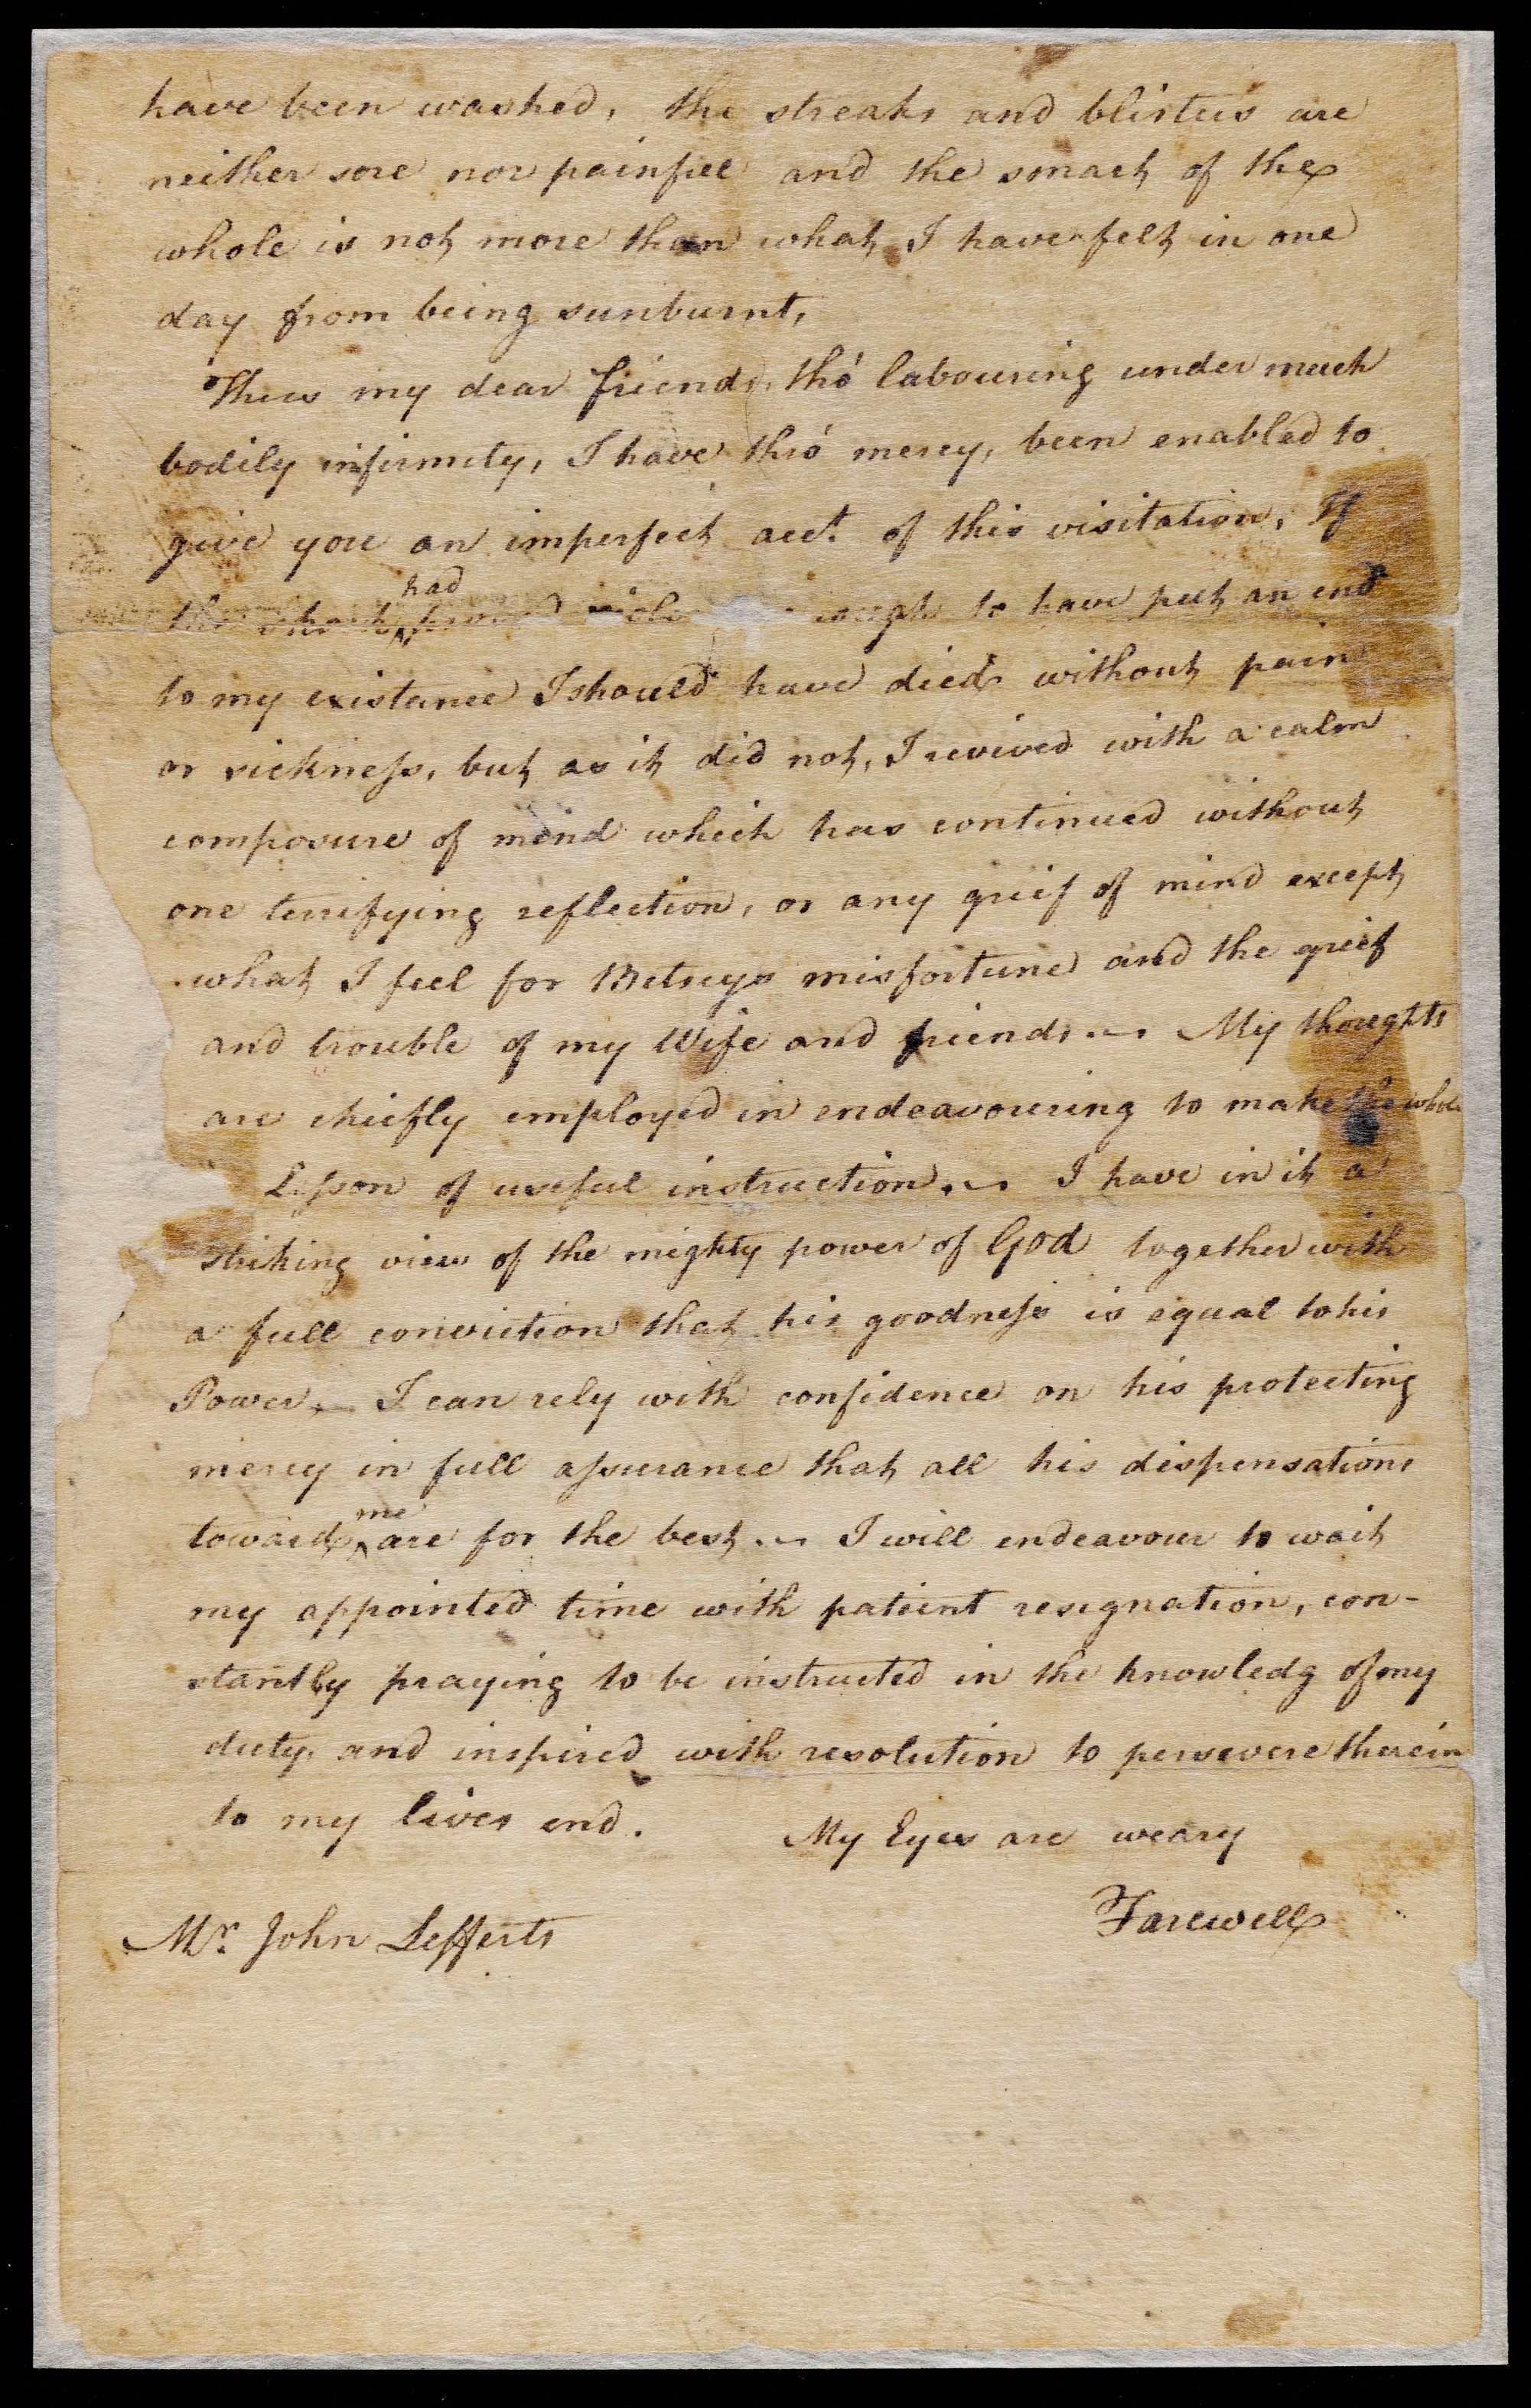 have been washed, the streaks and blisters are
neither sore nor painfull and the smart of the
whole is not more than what I have felt in one
day from being sunburnt,
Thus my dear friends, tho' labouring under much
bodily infirmity, I have thro' mercy, been enabled to
give you an imperfect acct. of this visitation, If
the shock had proved to have put an end
to my existance I should have died without pain
or sickness, but as it did not, I revived with a calm
composure of mind which has continued without
one terrifying reflection, or any grief of mind except
what I feel for Betseys misfortune and the grief
and trouble of my Wife and friends. ~ My thoughts
are chiefly employed in endeavouring to make the whole
Lesson of useful instruction. ~ I have in it a
striking view of the mighty power of God together with
a full conviction that his goodness is equal to his
Power. ~ I can rely with confidence on his protecting
mercy in full assurance that all his dispensations
toward me are for the best. ~ I will endeavour to wait
my appointed time with patient resignation, con-
stantly praying to be instructed in the knowledg of my
duty, and inspired with resolution to persevere therein
to my lives end. My Eyes are weary
Farewell
Mr. John Lefferts